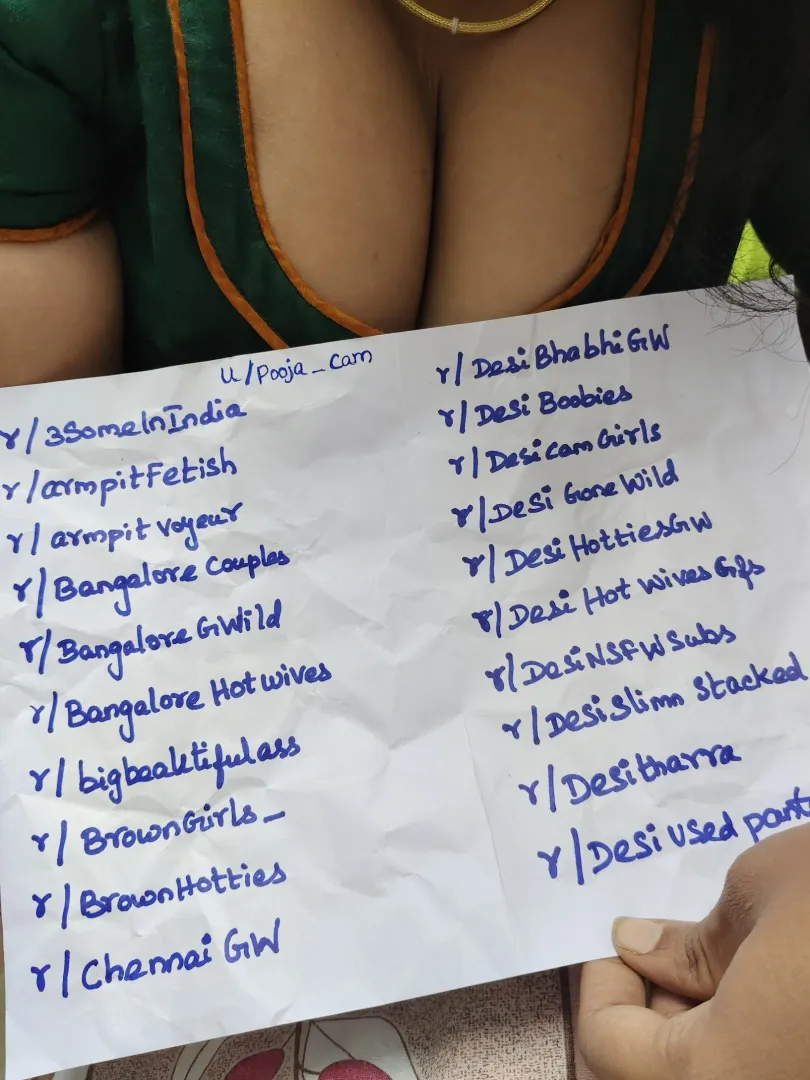 u/Pooja_Cam
r/3SomeInIndia
r/armpitFetish
r/armpit voyeur
r/Bangalore Couples
r/Bangalore GWild
r/Bangalore Hotwives
r/bigbeaktifulass
r/BrownGirls_
r/BrownHotties
r/Chennai GW
r/DesiBhabhiGW
r/Desi Boobies
r/DesiCamGirls
r/Desi GoneWild
r/Desi HottiesGW
r/Desi Hot Wives Gfs
r/DesiNSFWSubs
r/DesiSlimn Stacked
r/Desitharra
r/Desi Used pant